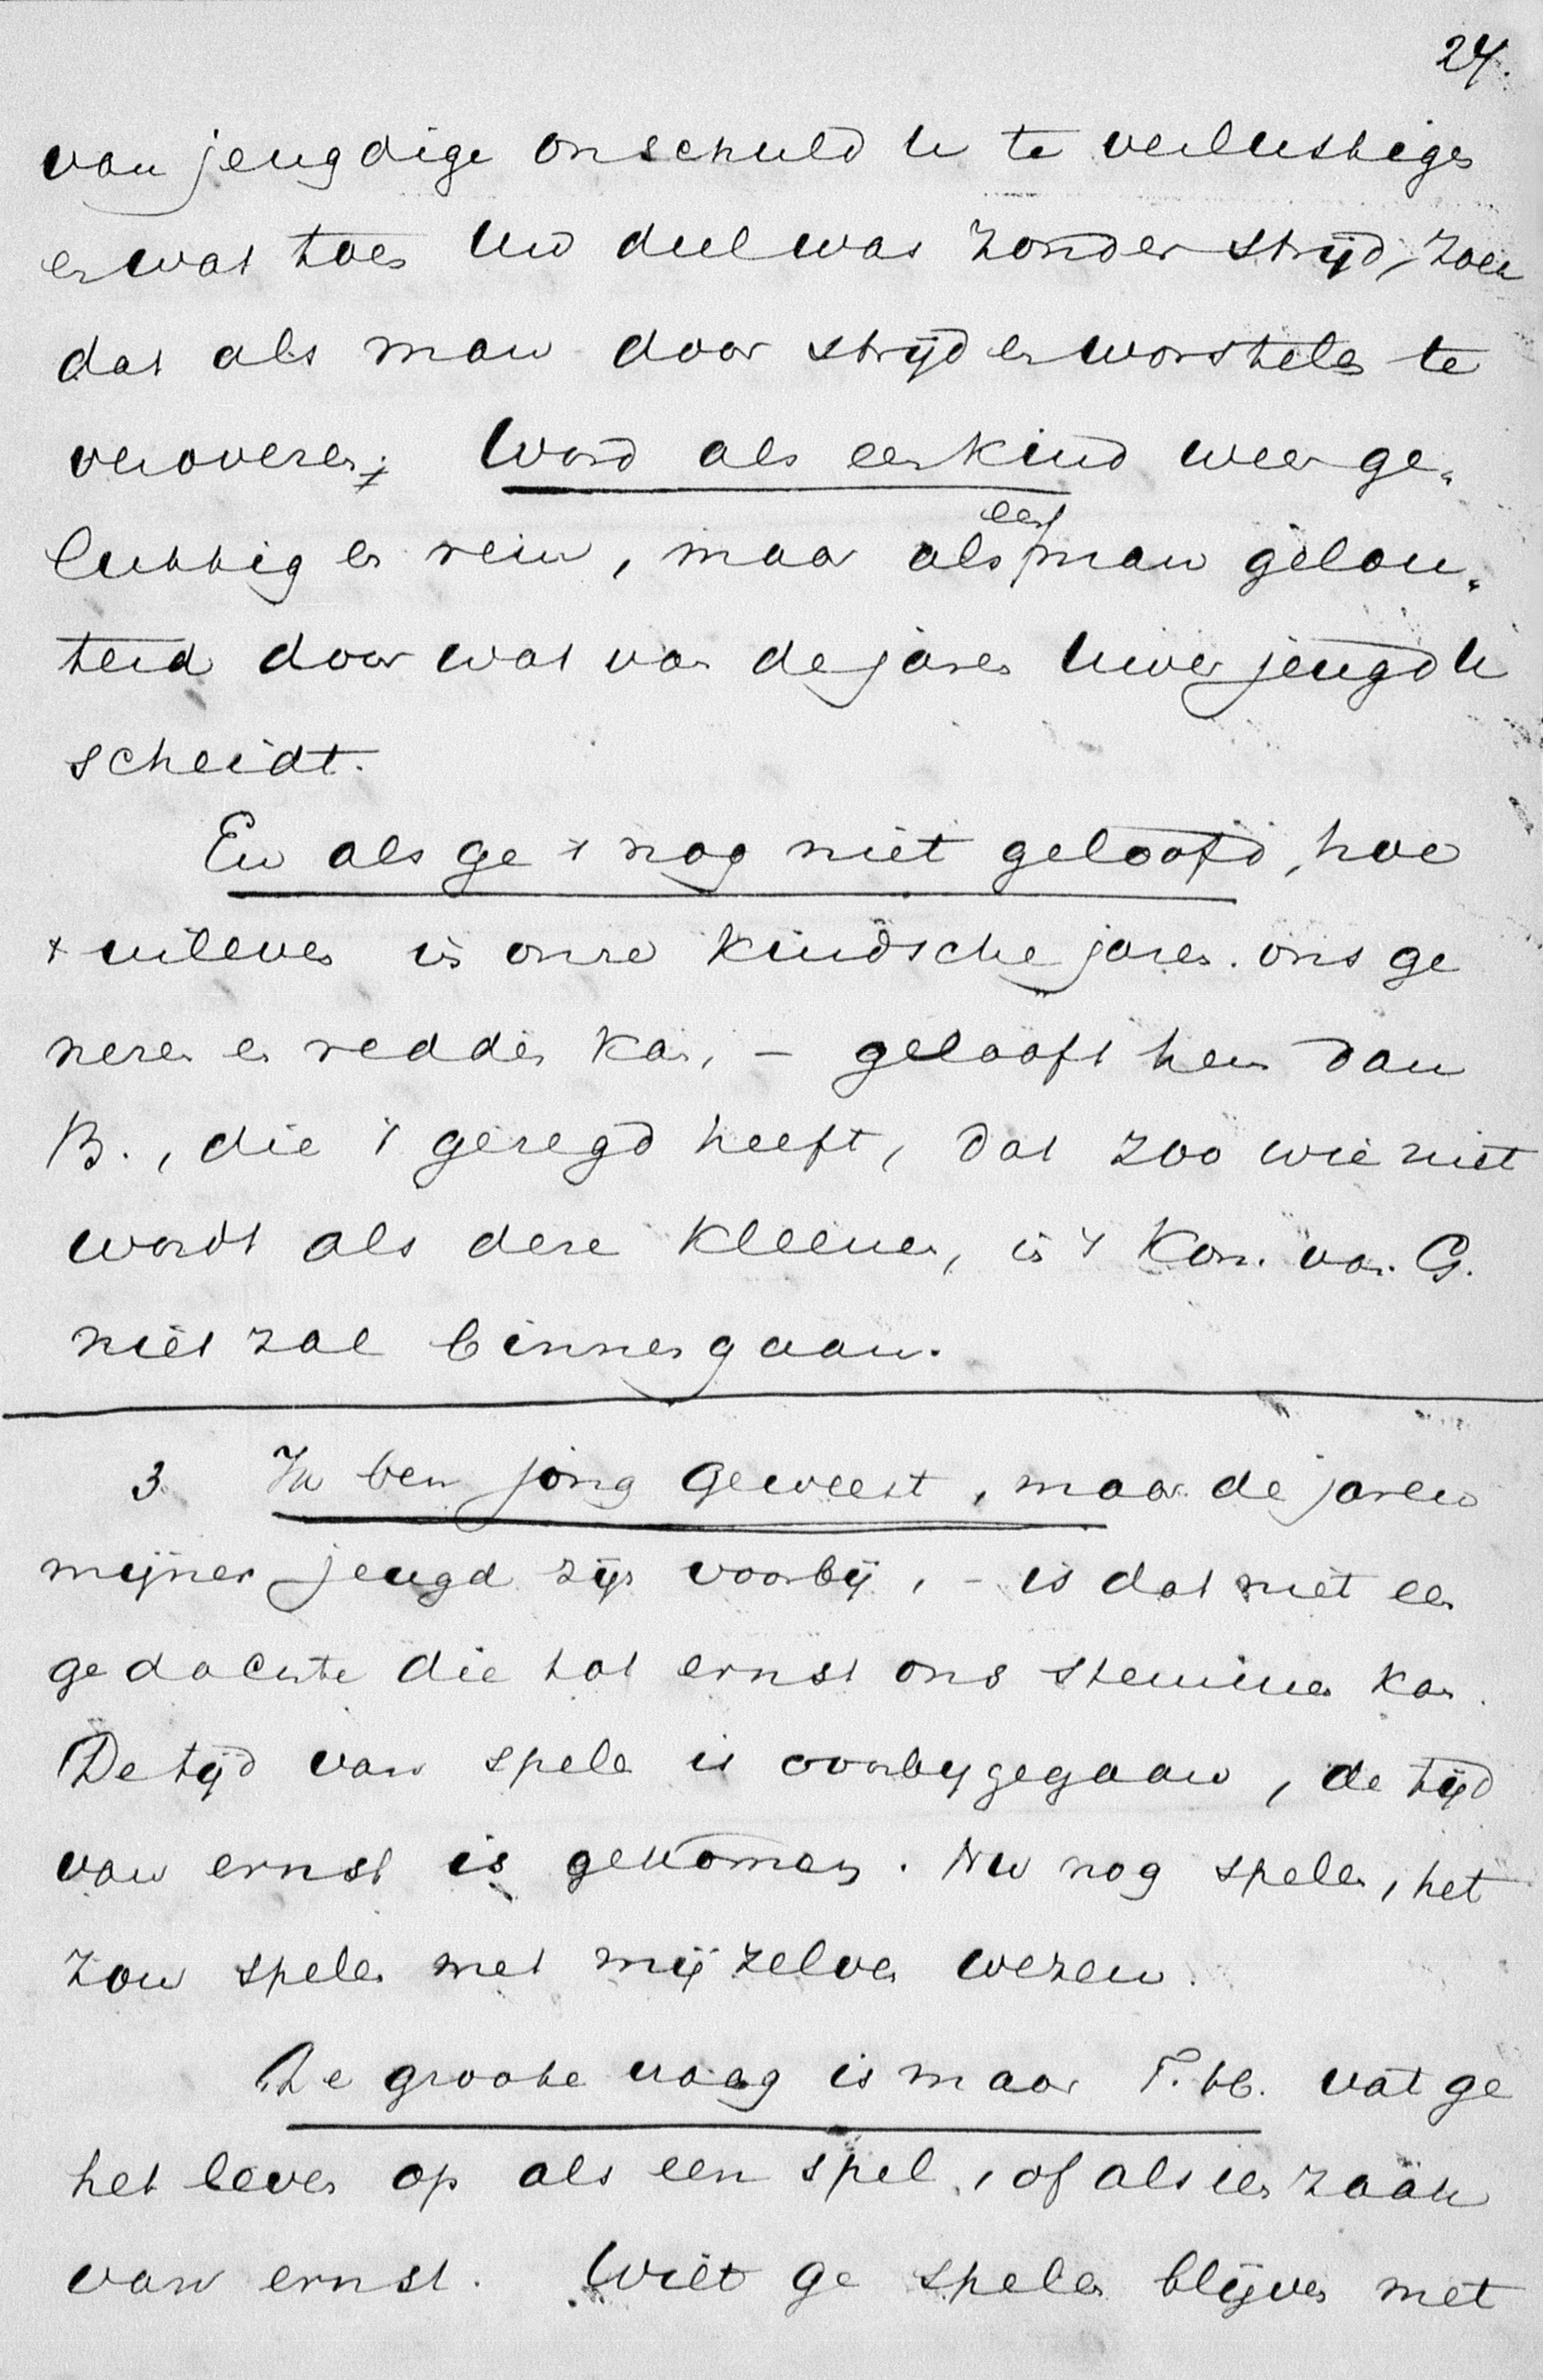 24.
van jeugdige onschuld U te verlustigen
en wat toen Uw deel was zonder strijd, zoek
dat als man door strijd en worstelen te
veroveren; Word als een kind weer ge-
lukkig en rein, maar als een man gelou-
terd door wat van de jaren Uwer jeugd U
scheidt.
En als ge 't nog niet gelooft, hoe
't inleven in onze kindsche jaren ons ge
nezen en redden kan, – gelooft hem dan
B., die 't gezegd heeft, dat zoo wie niet
wordt als deze kleenen, in 't Kon. van G.
niet zal binnengaan.
3. Ik ben jong geweest, maar de jaren
mijner jeugd zijn voorbij, – is dat niet een
gedachte die tot ernst ons stemmen kan.
De tijd van spelen is voorbijgegaan, de tijd
van ernst is gekomen. Nu nog spelen, het
zou spelen met mij zelven wezen.
De groote vraag is maar vat ge
het leven op als een spel, of als een zaak
van ernst. Wilt ge spelen blijven met